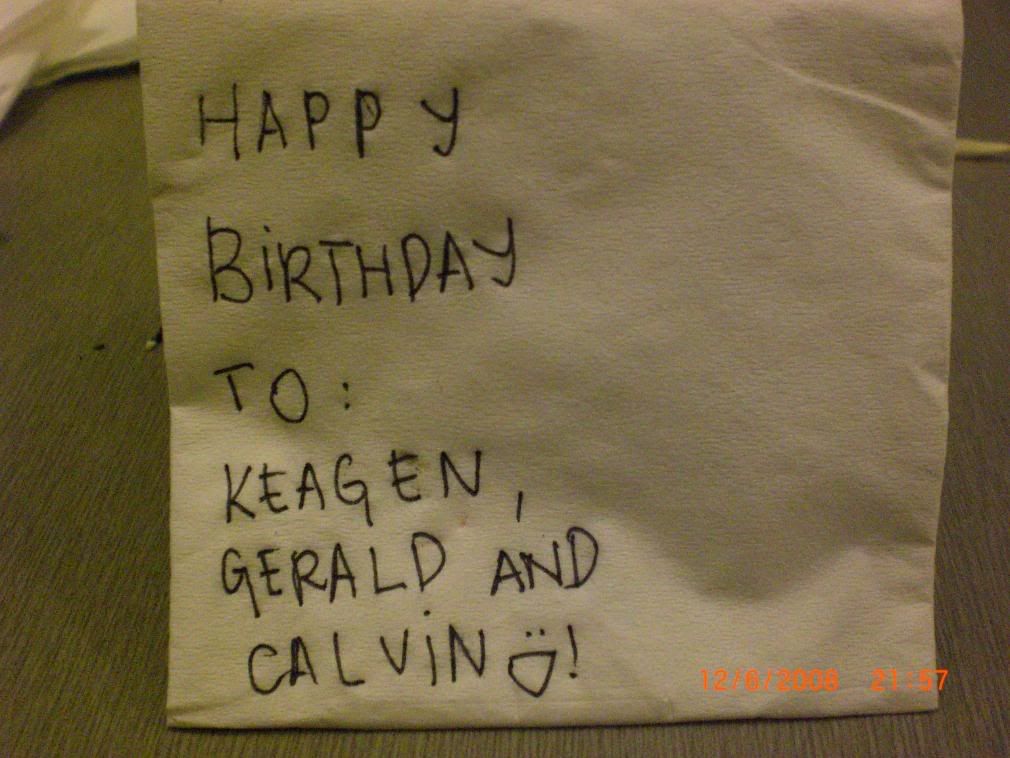 HAPPY
BiRTHDAY
TO:
KEAGEN,
GERALD AND
CALViN !
12/6/2008 21:57